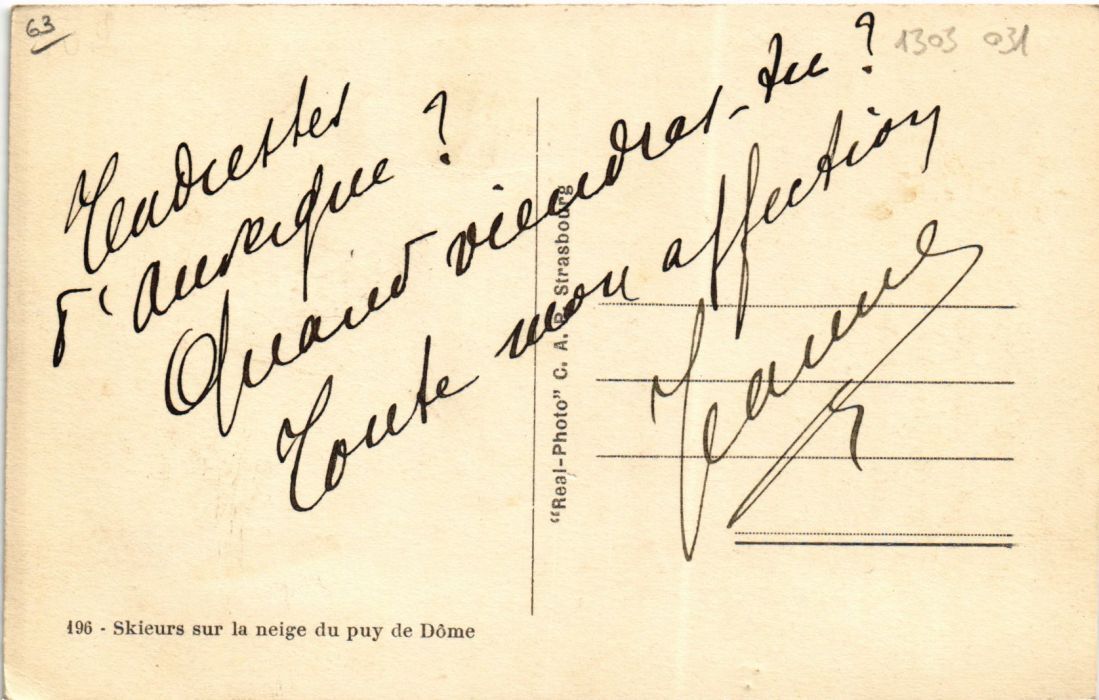 63
1303 031
Tendresses
d'Auvergne ?
Quand viendras-tu ?
Toute mon affection
Jeanne
"Real-Photo" C. A. P. Strasbourg
196 - Skieurs sur la neige du puy de Dôme